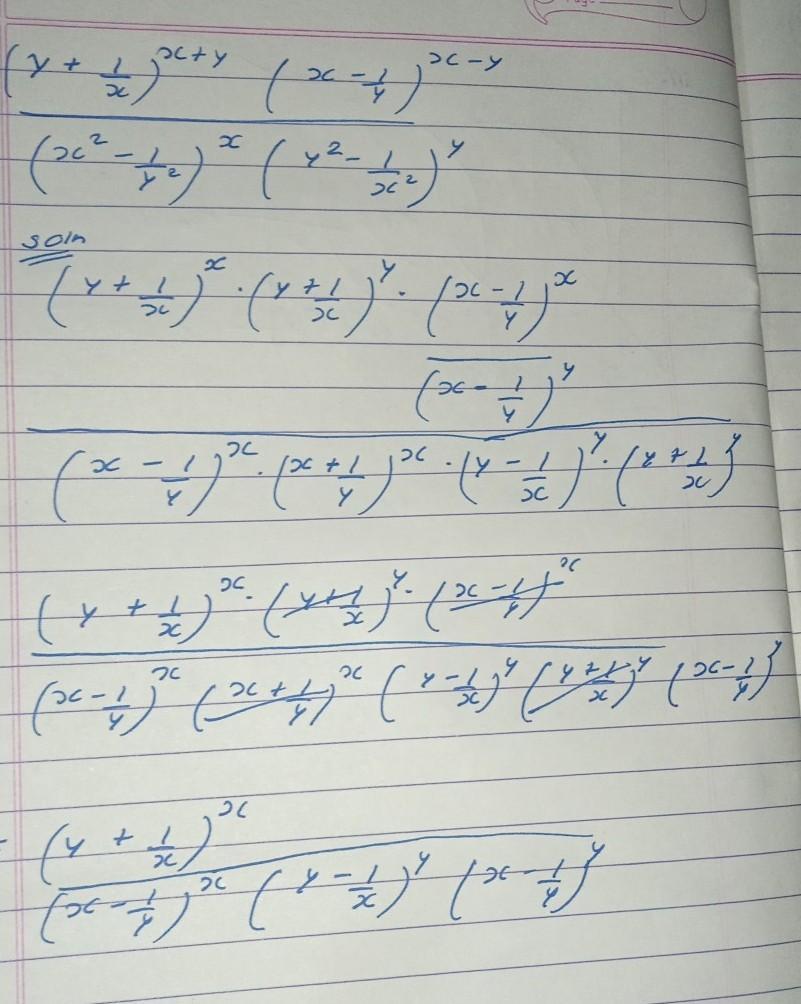 (y + 1/x)^x+y (x - 1/y)^x-y
(x² - 1/y²)^x (y² - 1/x²)^y
soln
(y + 1/x)^x · (y + 1/x)^y · (x - 1/y)^x
(x - 1/y)^y
(x - 1/y)^x · (x + 1/y)^x · (y - 1/x)^y · (y + 1/x)^y
(y + 1/x)^x · (y + 1/x)^y · (x - 1/y)^x
(x - 1/y)^x (x + 1/y)^x (y - 1/x)^y (y + 1/x)^y (x - 1/y)^y
(y + 1/x)^x
(x - 1/y)^x (y - 1/x)^y (x - 1/y)^y